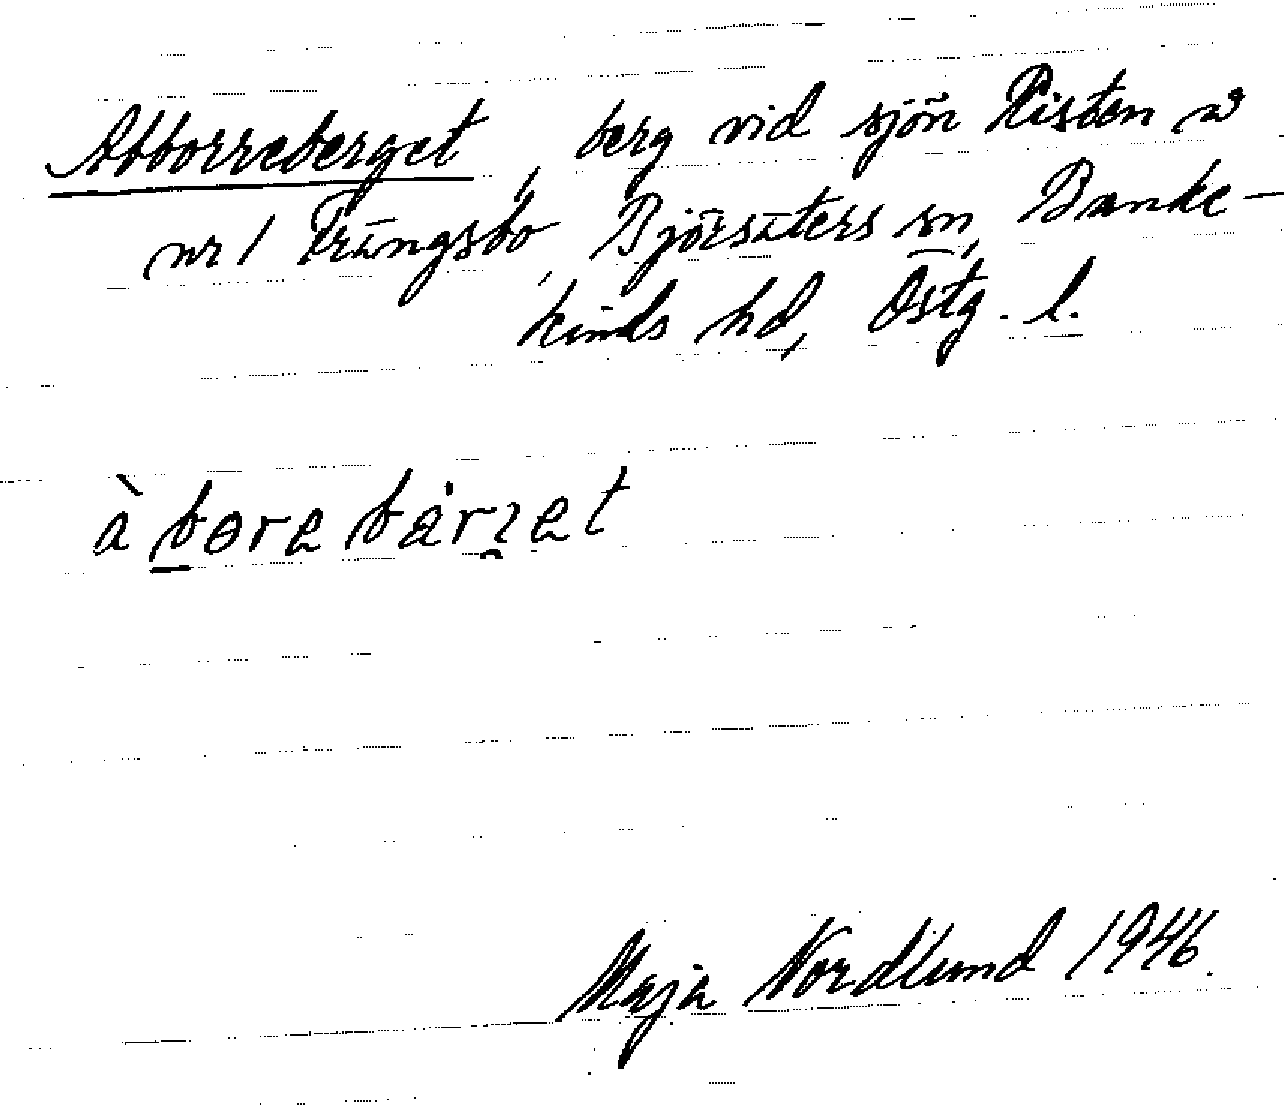 Abborreberget, berg vid sjön Risten å
nr 1 Trängsbo, Björsäters sn, Banke-
kinds hd, Östg. l.
Maja Nordlund 1946.